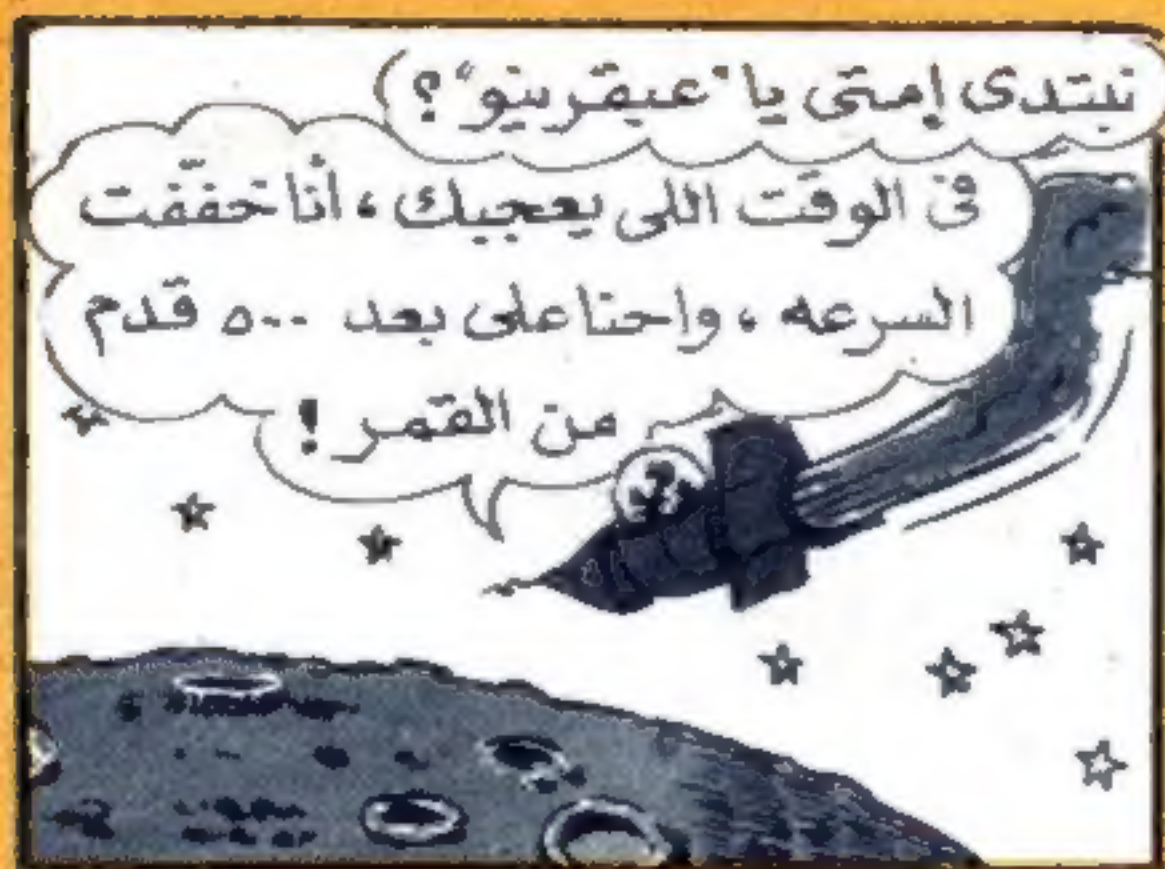 نبتدى إمتى يا "عبقرينو"؟
فى الوقت اللى يعجبك، أنا خففت
السرعه، واحنا على بعد ٥٠٠ قدم
من القمر!